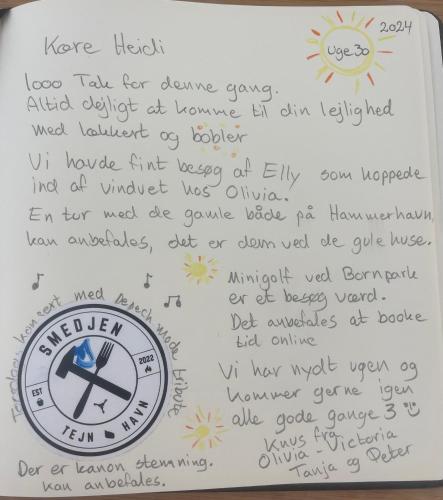 2024
Uge 30
Kære Heidi
1000 Tak for denne gang.
Altid dejligt at komme til din lejlighed
med lækkert og bobler
Vi havde fint besøg af Elly som hoppede
ind af vinduet hos Olivia.
En tur med de gamle både på Hammerhavn,
kan anbefales, det er dem ved de gule huse.
Minigolf ved Bornpark
er et besøg værd.
Det anbefales at booke
tid online
Torsdag koncert med Depech mode tribute
SMEDJEN
EST
2022
TEJN HAVN
Der er kanon stemning.
kan anbefales.
Vi har nydt ugen og
kommer gerne igen
alle gode gange 3
Knus fra
Olivia - Victoria
Tanja og Peter